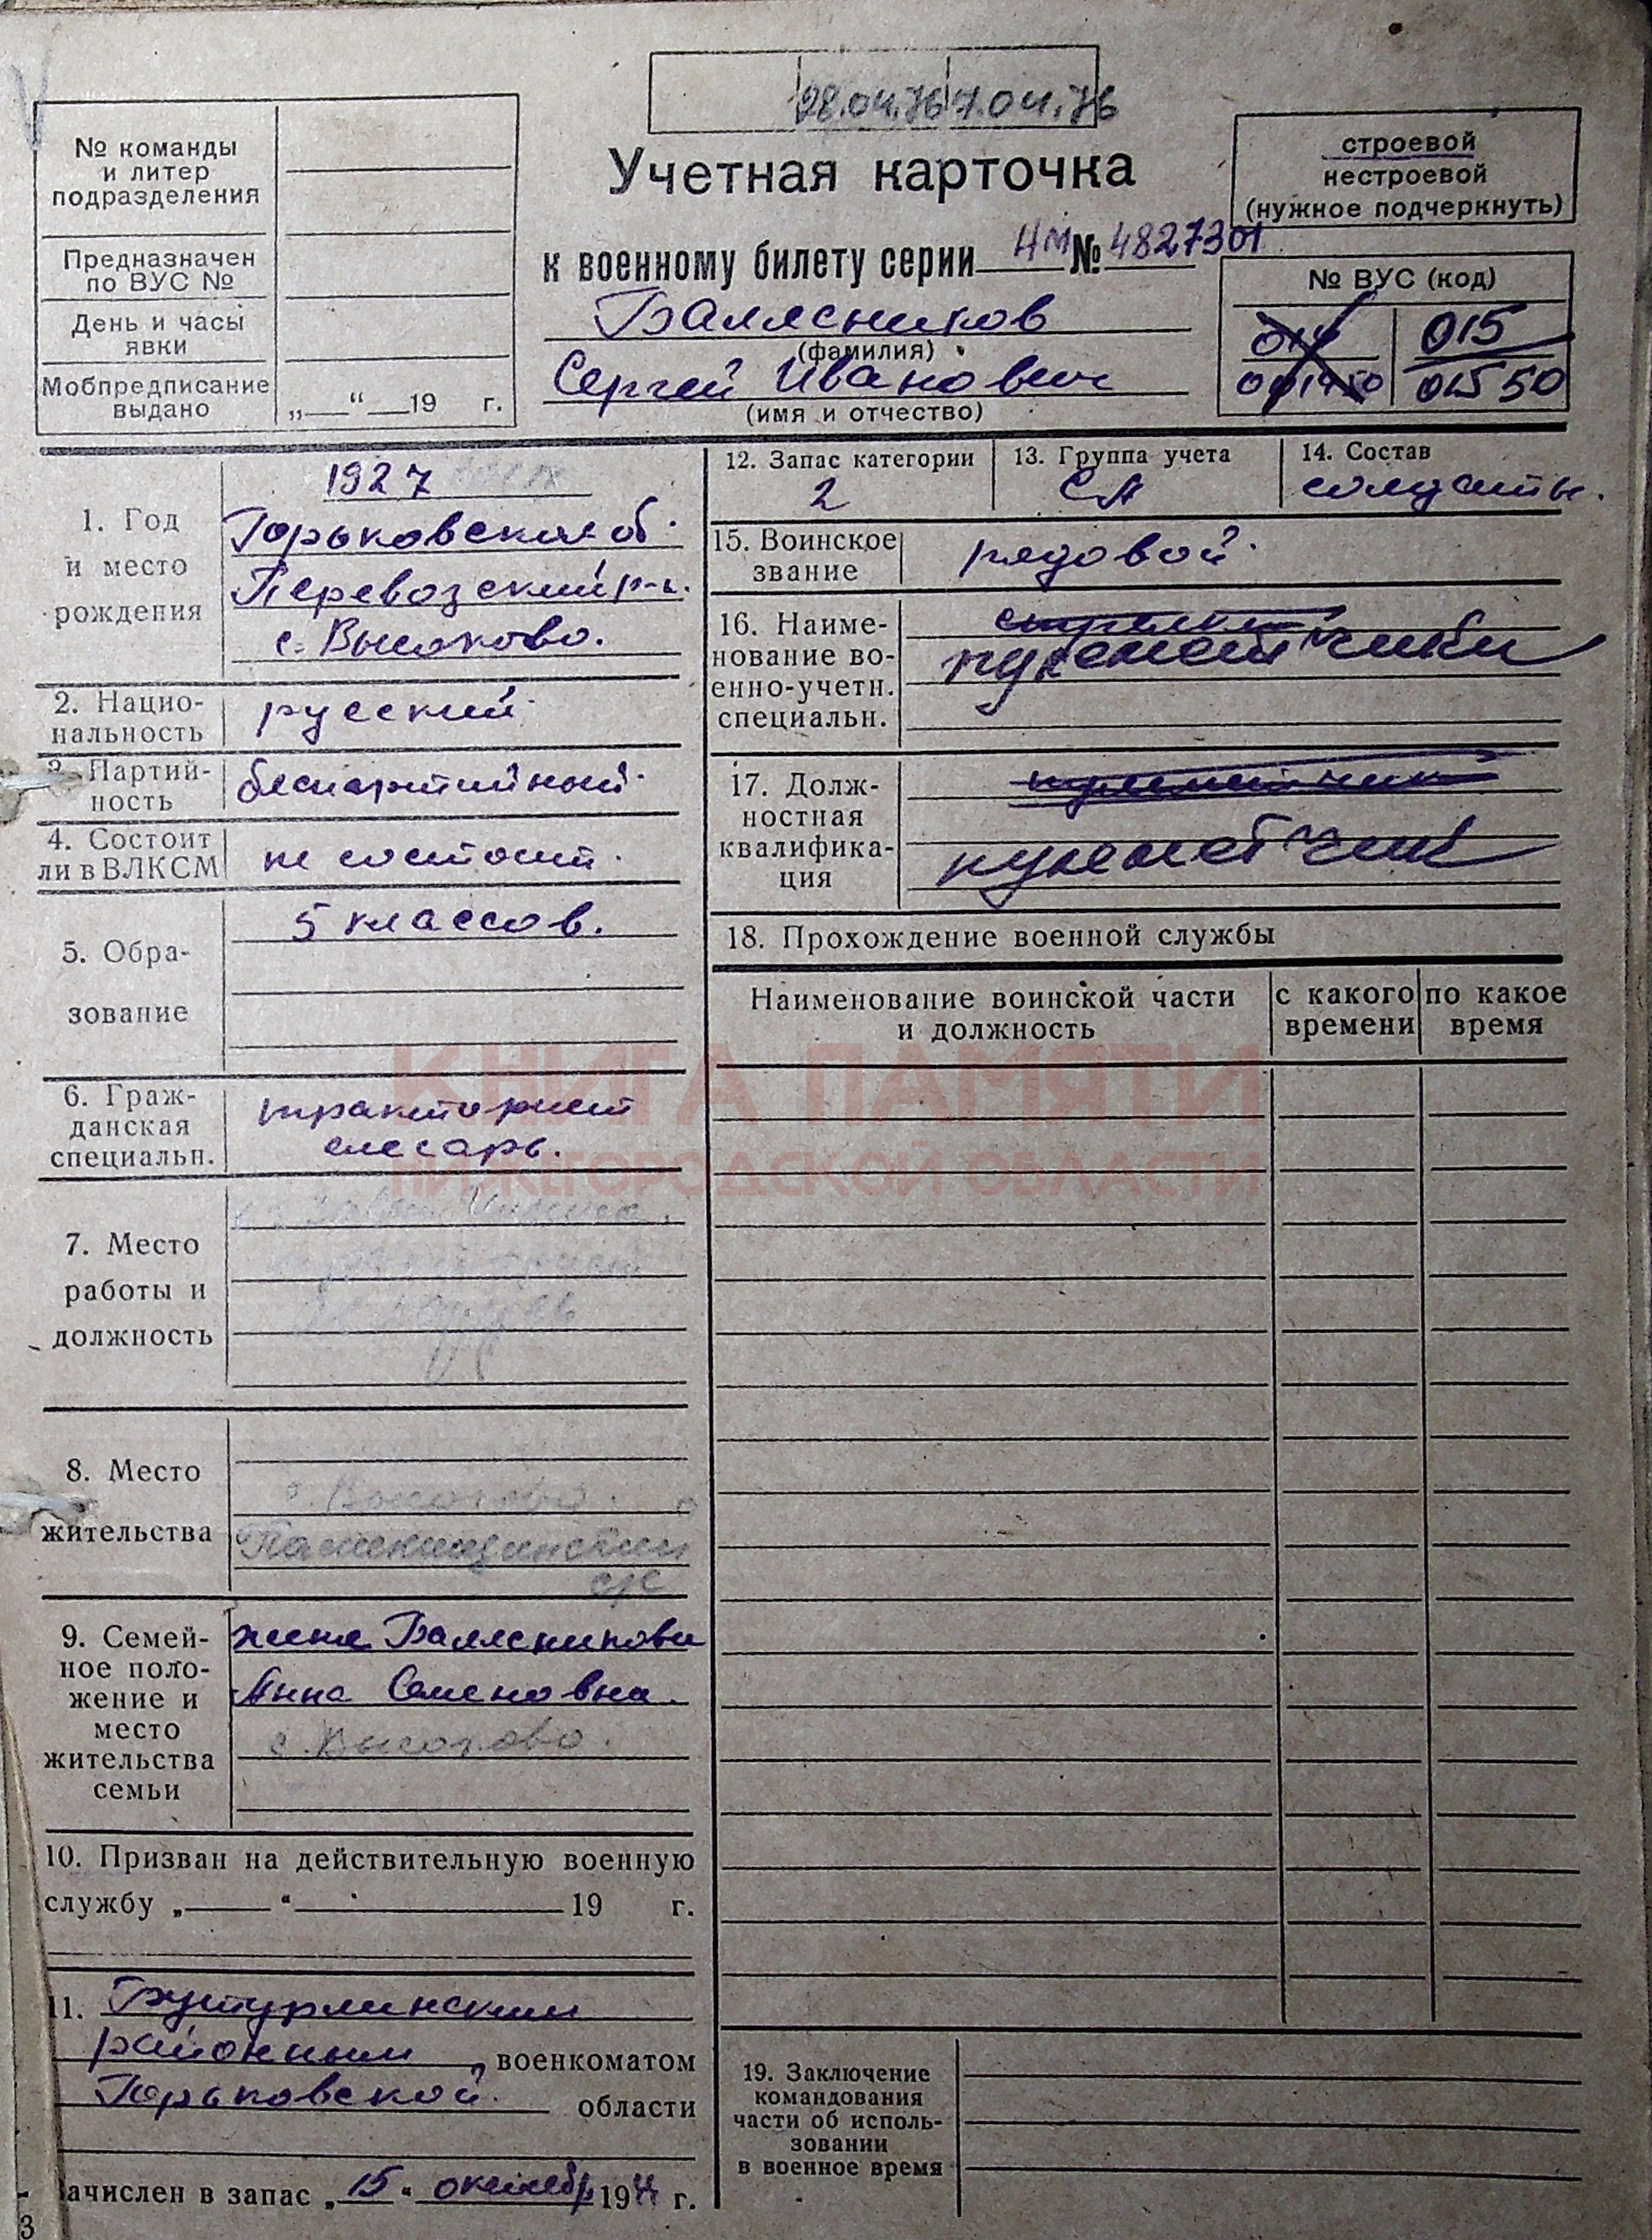 28.04.76 7.04.76
№ команды
и литер
подразделения
Предназначен
по ВУС №
День и часы
явки
Мобпредписание
выдано
„ “ 19 г.
Учетная карточка
к военному билету серии НМ № 4827301
Балясников
(фамилия)
Сергей Иванович
(имя и отчество)
строевой
нестроевой
(нужное подчеркнуть)
№ ВУС (код)
014 015
01550
1. Год
и место
рождения
1927
Горьковская об.
Перевозский р-н.
с. Высоково.
2. Нацио-
нальность
русский.
3. Партий-
ность
беспартийный.
4. Состоит
ли в ВЛКСМ
не состоит.
5. Обра-
зование
5 классов.
6. Граж-
данская
специальн.
тракторист
слесарь.
7. Место
работы и
должность
8. Место
жительства
с. Высоково.
с/с
9. Семей-
ное поло-
жение и
место
жительства
семьи
жена Балясникова
Анна Семеновна.
с. Высоково.
10. Призван на действительную военную
службу „ “ 19 г.
11. Бутурлинским
районным военкоматом
Горьковской области
Зачислен в запас „15“ октябр 194 г.
3
12. Запас категории
2
13. Группа учета
СА
14. Состав
солдаты.
15. Воинское
звание
рядовой.
16. Наиме-
нование во-
енно-учетн.
специальн.
стрелки
пулеметчики
17. Долж-
ностная
квалифика-
ция
пулеметчик
пулеметчик
18. Прохождение военной службы
Наименование воинской части
и должность
с какого
времени
по какое
время
КНИГА ПАМЯТИ
НИЖЕГОРОДСКОЙ ОБЛАСТИ
19. Заключение
командования
части об исполь-
зовании
в военное время